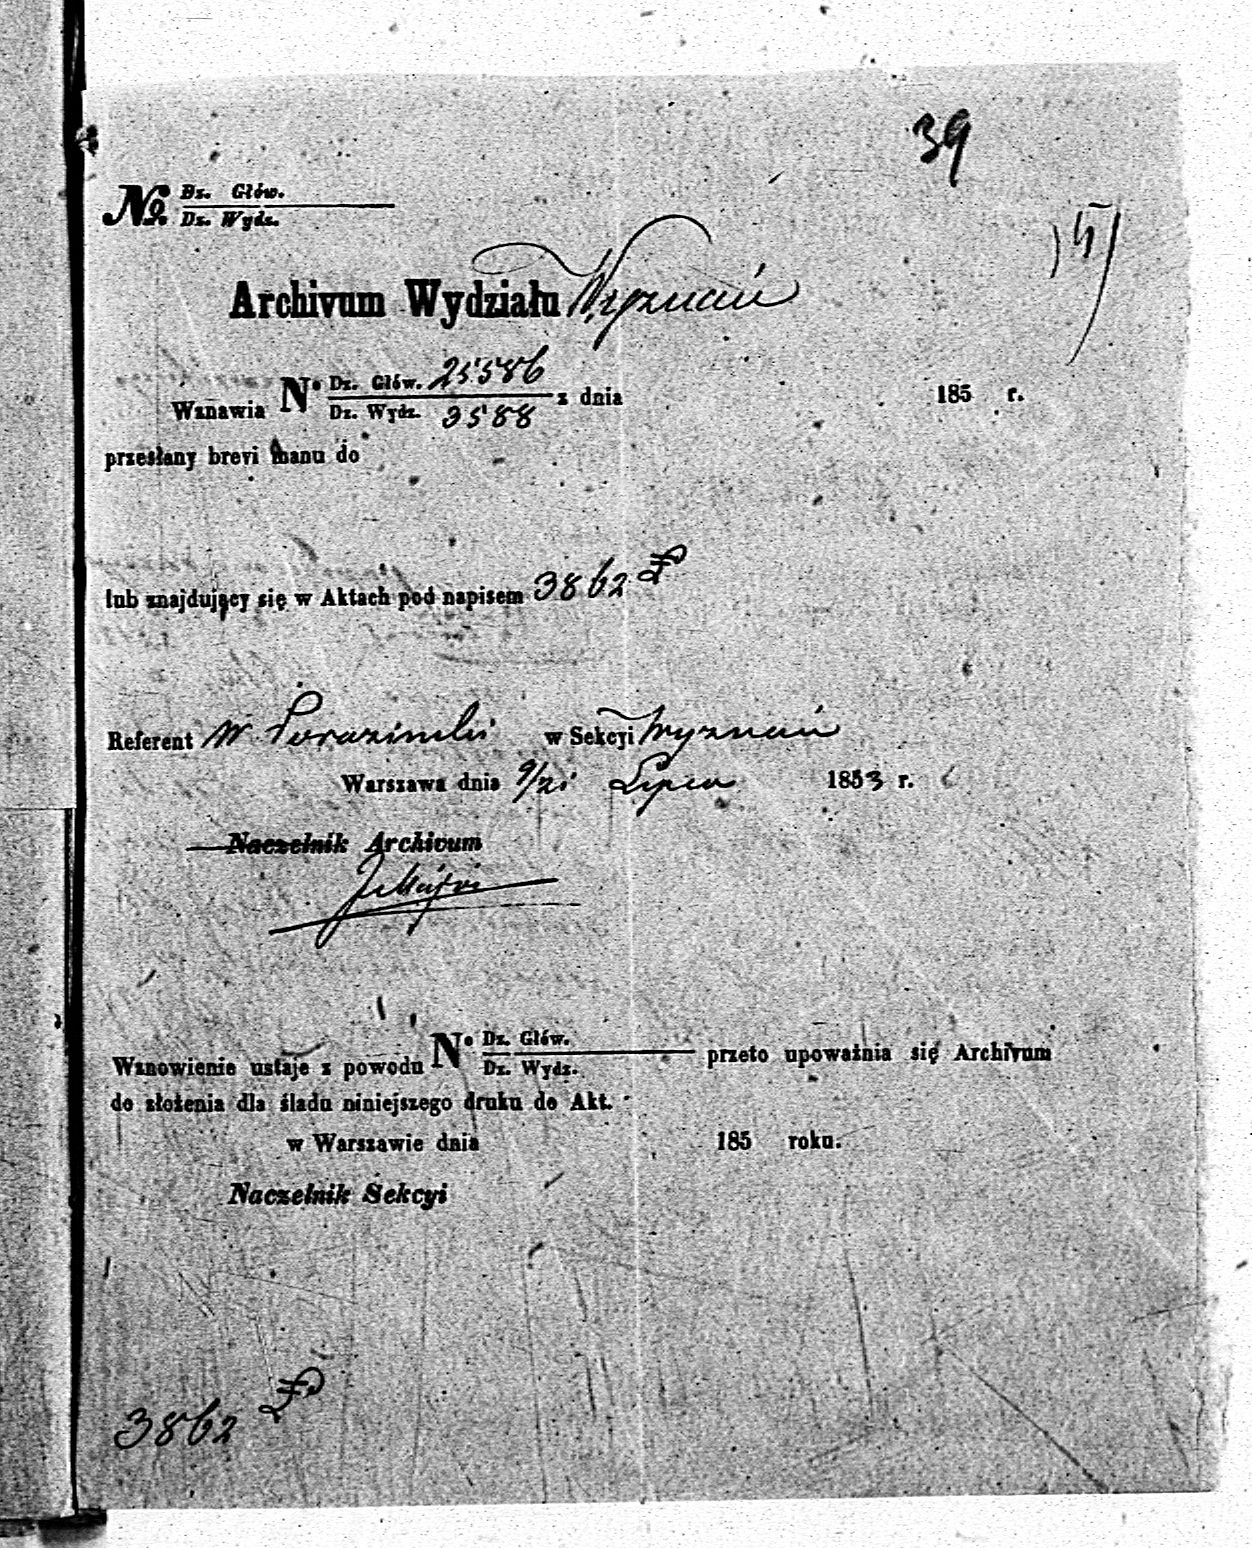 39
№ Dz. Głów.
Dz. Wydz.
Archivum Wydziału Wyznań
Wznawia N° Dz. Głów. 25586 z dnia 185 r.
Dz. Wydz. 3588
przesłany brevi manu do
lub znajdujący się w Aktach pod napisem 3862
Referent W. Porazinski w Sekcyi Wyznań
Warszawa dnia 9/21 Lipca 1853 r.
Naczelnik Archivum
Wznowienie ustaje z powodu N° Dz. Głów. przeto upoważnia się Archivum
Dz. Wydz.
do złożenia dla śladu niniejszego druku do Akt.
w Warszawie dnia 185 roku.
Naczelnik Sekcyi
3862